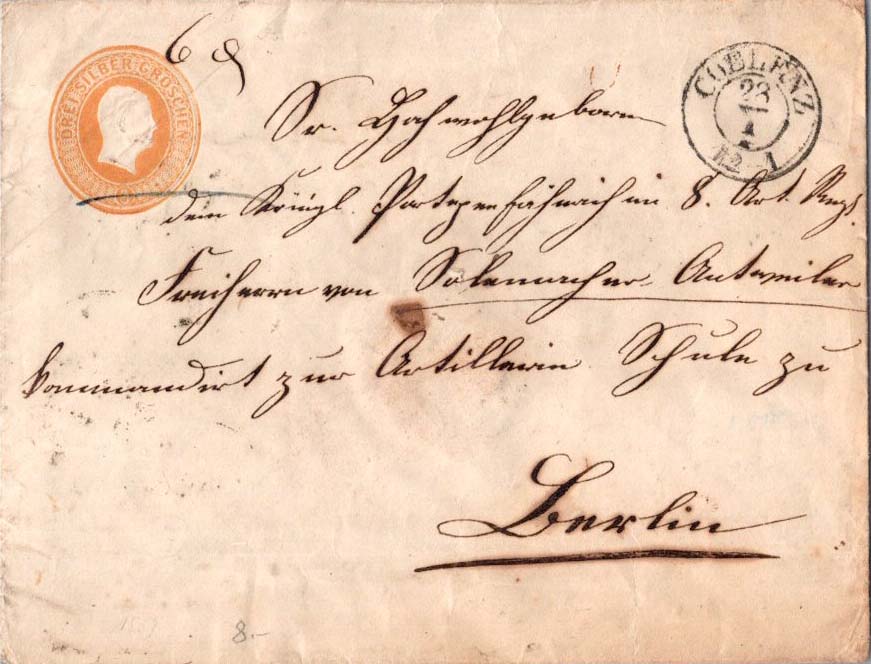 DREI SILBER GROSCHEN
6
COELENZ
23
1
12-1
Sr. Hochwohlgeboren
dem Königl. Portepeefähnrich im 8. Art. Regt.
Freiherrn von Solemacher-Antweiler
kommandirt zur Artillerie Schule zu
Berlin
8.-